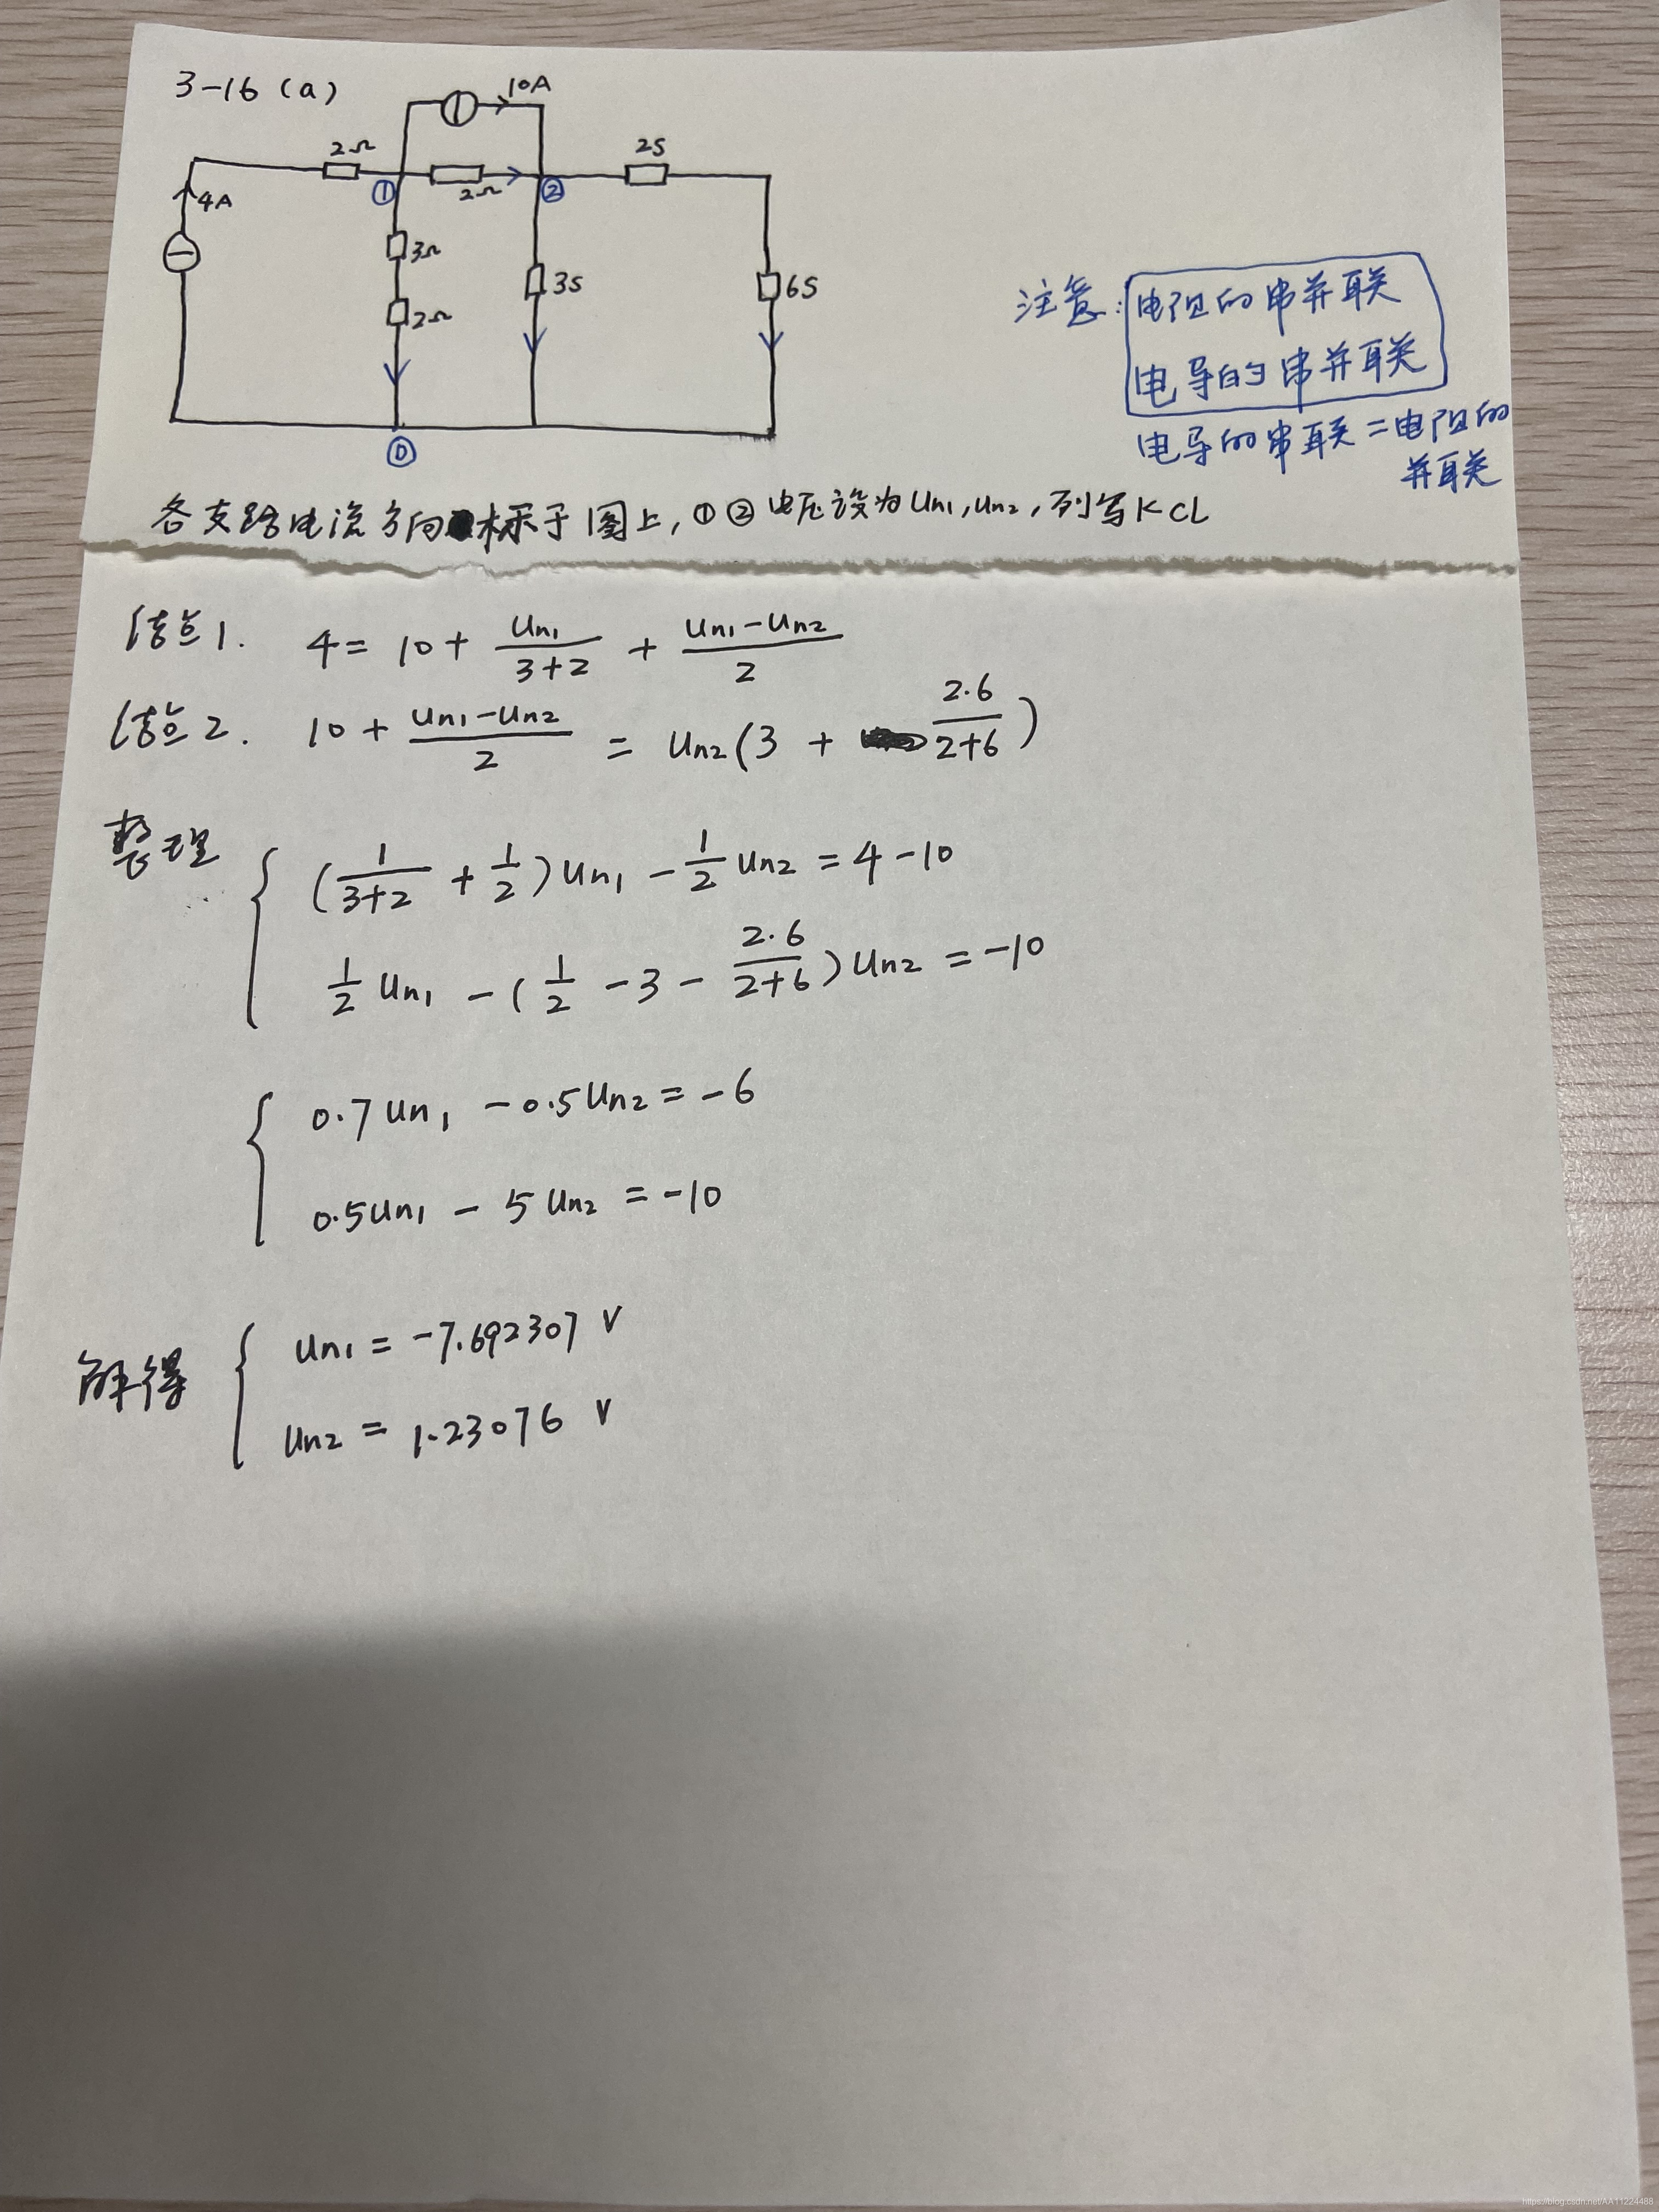 3-16 (a)
10A
2Ω
2S
4A
①
2Ω
②
3Ω
2Ω
3S
6S
⓪
注意:电阻的串并联
电导的串并联
电导的串联=电阻的
并联
各支路电流方向标于图上,①②电压设为Un1,Un2,列写KCL
结点1. 4= 10+ Un1/(3+2) + (Un1-Un2)/2
结点2. 10+ (Un1-Un2)/2 = Un2(3 + 2·6/(2+6))
整理
(1/(3+2) + 1/2)Un1 - 1/2 Un2 = 4-10
1/2 Un1 - (1/2 -3 - 2·6/(2+6))Un2 = -10
0.7Un1 -0.5Un2 = -6
0.5Un1 - 5Un2 = -10
解得
Un1 = -7.692307 V
Un2 = 1.23076 V
https://blog.csdn.net/AA11224488